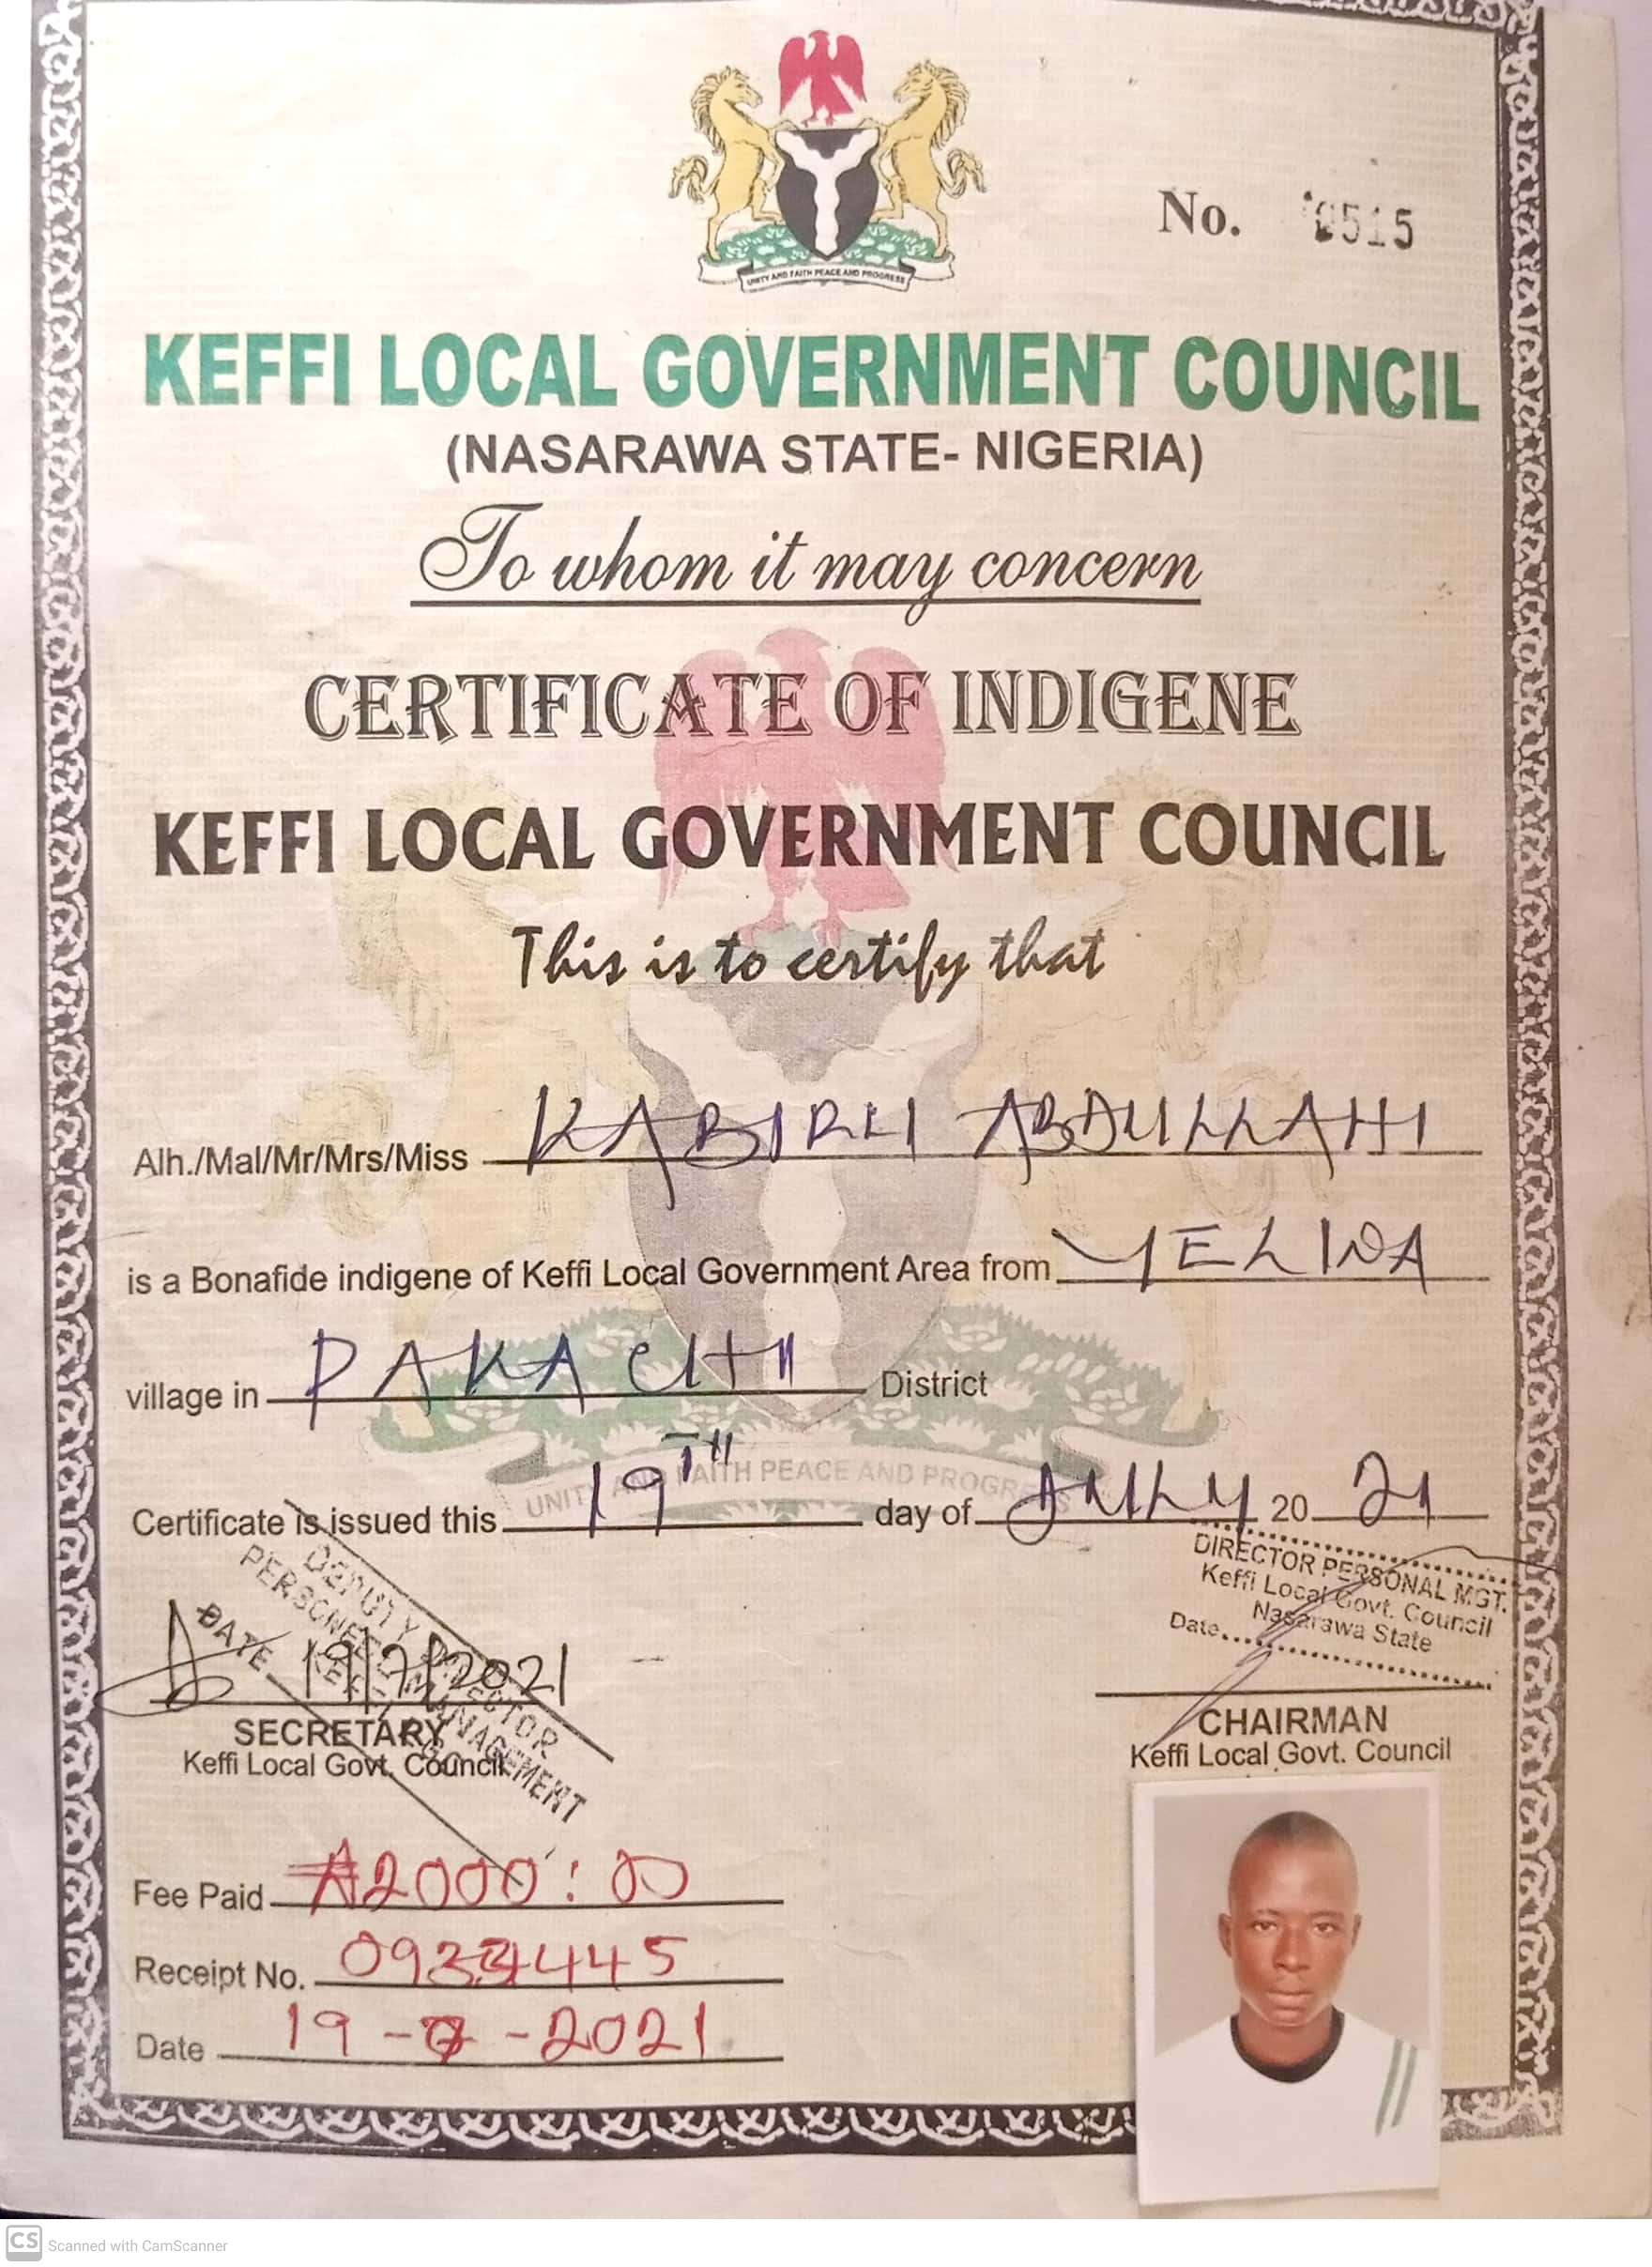 UNITY AND FAITH PEACE AND PROGRESS
No. 0515
KEFFI LOCAL GOVERNMENT COUNCIL
(NASARAWA STATE- NIGERIA)
To whom it may concern
CERTIFICATE OF INDIGENE
KEFFI LOCAL GOVERNMENT COUNCIL
This is to certify that
Alh./Mal/Mr/Mrs/Miss KABIRU ABDULLAHI
is a Bonafide indigene of Keffi Local Government Area from YELWA
village in
District
UNITY AND FAITH PEACE AND PROGRESS
Certificate is issued this 19TH day of JULY 20 21
DEPUTY DIRECTOR
PERSONNEL MANAGEMENT
DATE 19/7/2021
SECRETARY
Keffi Local Govt. Council
DIRECTOR PERSONAL MGT.
Keffi Local Govt. Council
Nasarawa State
Date
CHAIRMAN
Keffi Local Govt. Council
Fee Paid ₦2000:00
Receipt No.
Date 19-7-2021
CS Scanned with CamScanner